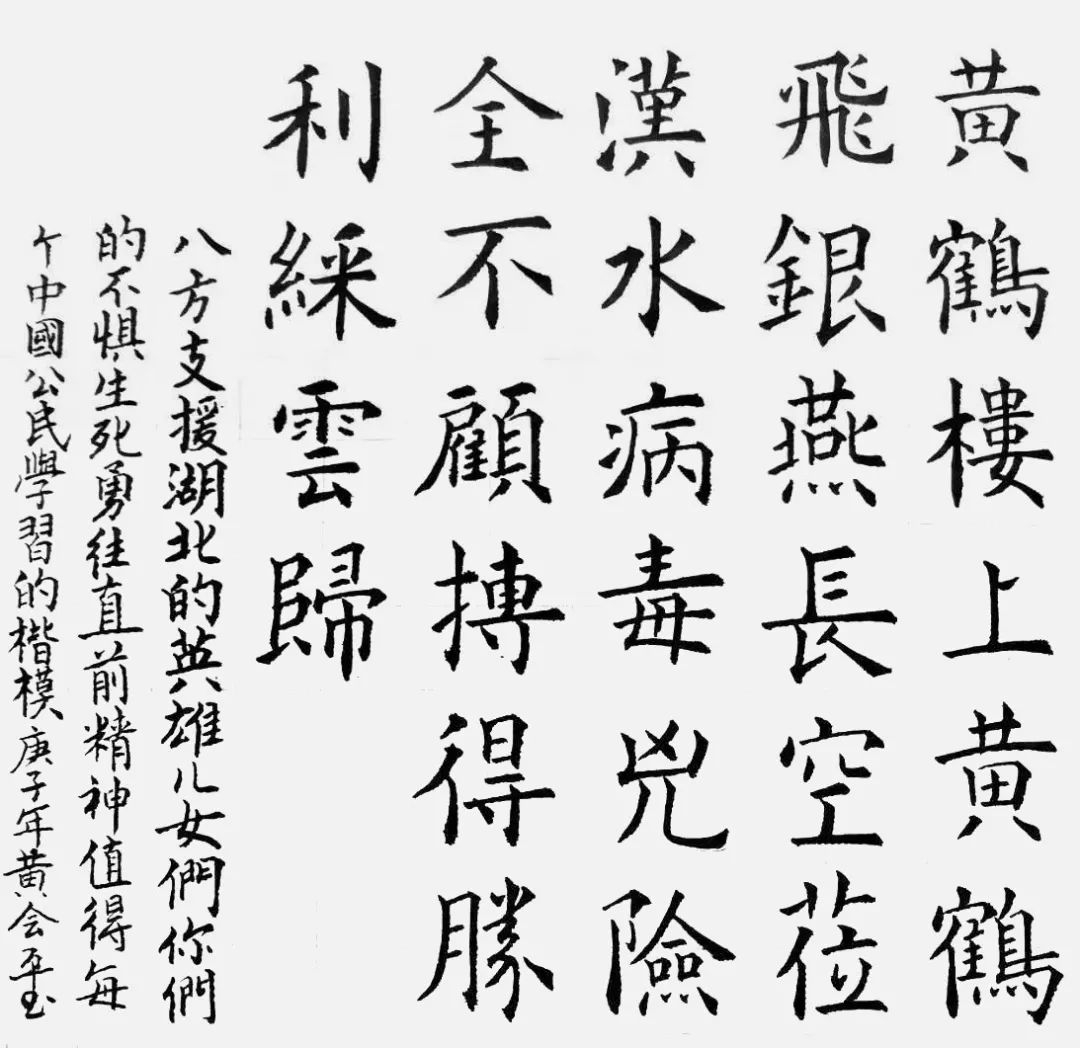 黃鶴樓上黃鶴
飛銀燕長空蒞
漢水病毒兇險
全不顧搏得勝
利綵雲歸
八方支援湖北的英雄儿女們你們
的不惧生死勇往直前精神值得每
个中國公民學習的楷模庚子年黄会平书